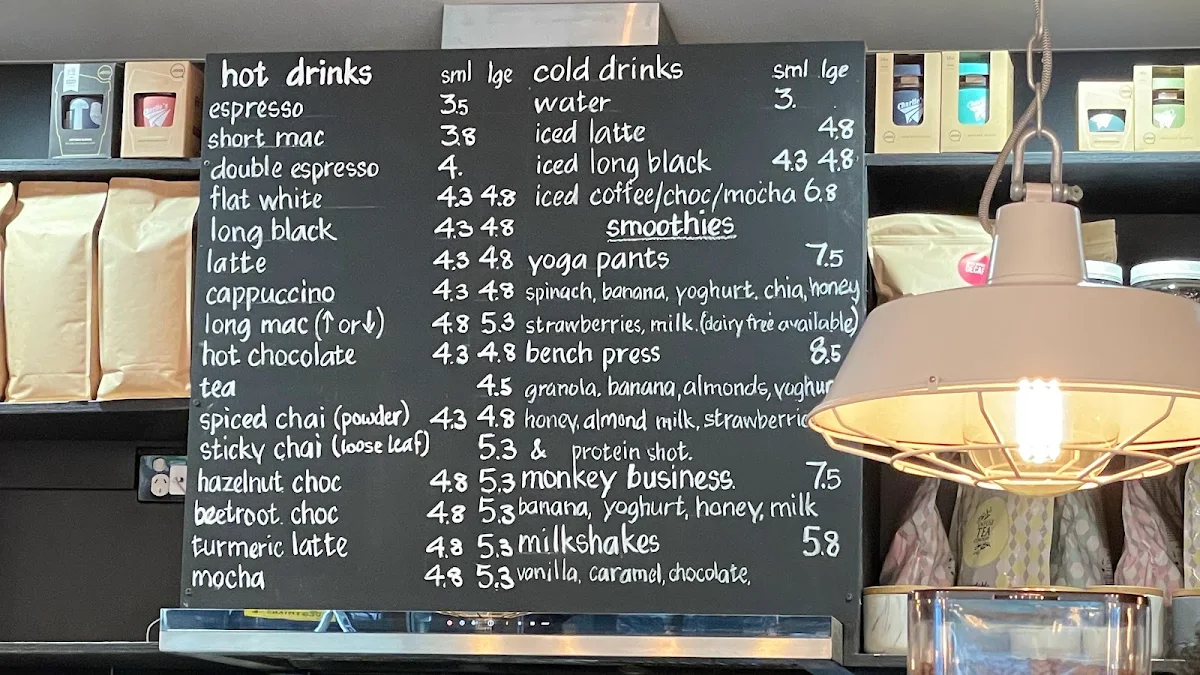 hot drinks sml lge
espresso 3.5
short mac 3.8
double espresso 4.
flat white 4.3 4.8
long black 4.3 4.8
latte 4.3 4.8
cappuccino 4.3 4.8
long mac (↑ or ↓) 4.8 5.3
hot chocolate 4.3 4.8
tea 4.5
spiced chai (powder) 4.3 4.8
sticky chai (loose leaf) 5.3
hazelnut choc 4.8 5.3
beetroot. choc 4.8 5.3
turmeric latte 4.8 5.3
mocha 4.8 5.3
cold drinks sml lge
water 3.
iced latte 4.8
iced long black 4.3 4.8
iced coffee/choc/mocha 6.8
smoothies
yoga pants 7.5
spinach, banana, yoghurt. chia, honey
strawberries, milk. (dairy free available)
bench press 8.5
granola. banana, almonds,
honey, almond milk,
& protein shot.
monkey business. 7.5
banana, yoghurt, honey, milk
milkshakes 5.8
vanilla, caramel, chocolate,